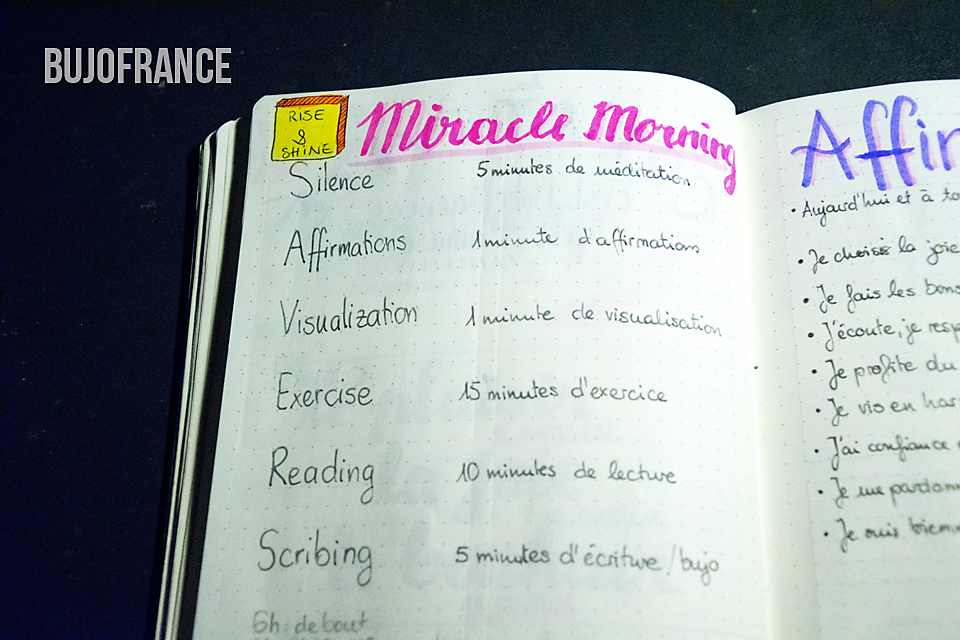 BUJOFRANCE
RISE
&
SHINE
Miracle Morning
Silence 5 minutes de méditation
Affirmations 1 minute d'affirmations
Visualization 1 minute de visualisation
Exercise 15 minutes d'exercice
Reading 10 minutes de lecture
Scribing 5 minutes d'écriture / bujo
6h: debout
Affir
• Aujourd'hui et à to
• Je choisis la joie
• Je fais les bons
• J'écoute, je resp
• Je profite du
• Je vis en har
• J'ai confiance
• Je me pardonn
• Je suis bienv